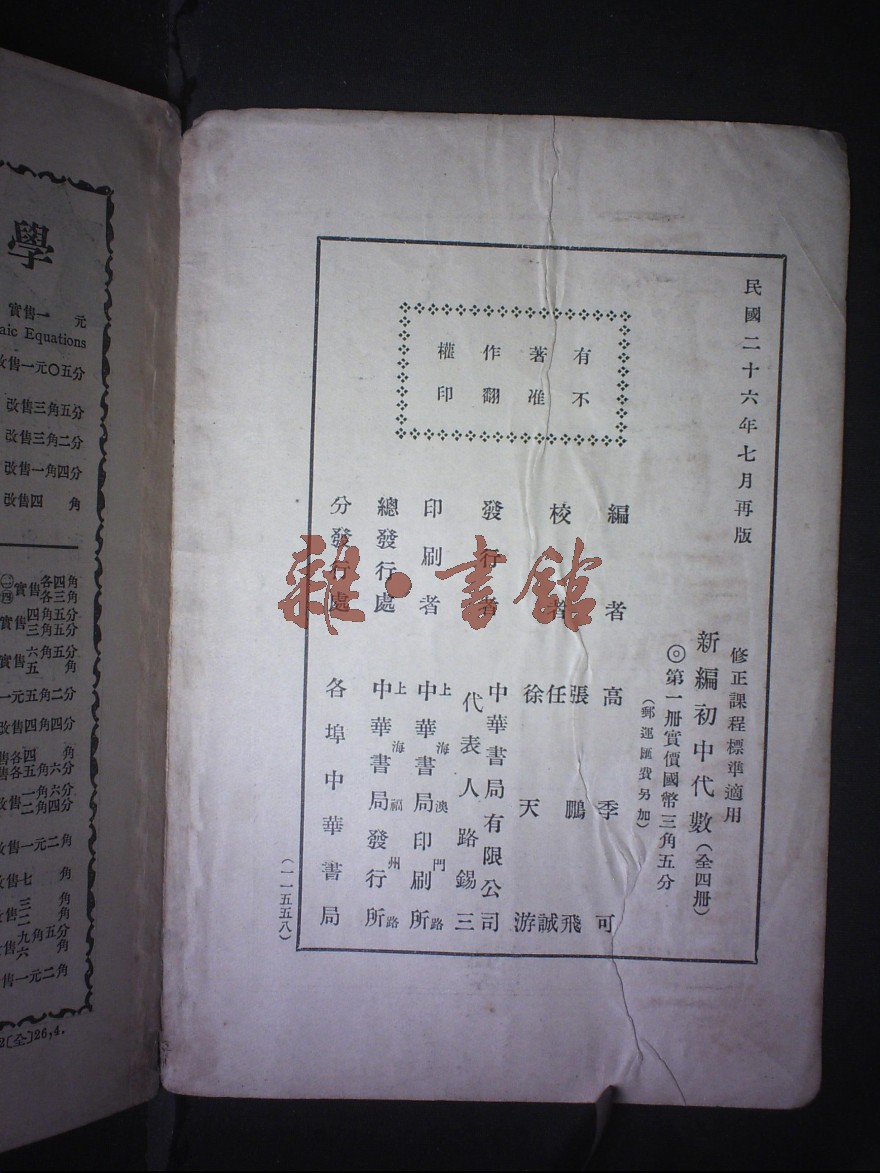 民國二十六年七月再版
修正課程標準適用
新編初中代數(全四册)
◎第一册實價國幣三角五分
(郵運匯費另加)
有著作權
不准翻印
編者 高季可
校者 張鵬飛
任誠
徐天游
發行者 中華書局有限公司
代表人路錫三
印刷者 上海澳門路
中華書局印刷所
總發行處 上海福州路
中華書局發行所
分發行處 各埠中華書局
(一一五五八)
雜·書館
學
實售一 元
aic Equations
改售一元〇五分
改售三角五分
改售三角二分
改售一角四分
改售四 角
㊁㊃實售各四角
各三角
實售四角五分
三角五分
實售六角五分
五 角
一元五角二分
改售四角四分
售各四 角
售各五角六分
改售一角六分
二角四分
改售一元二角
改售七 角
改售三 角
二 角
售九角五分
六 角
售一元二角
2(全)26,4.